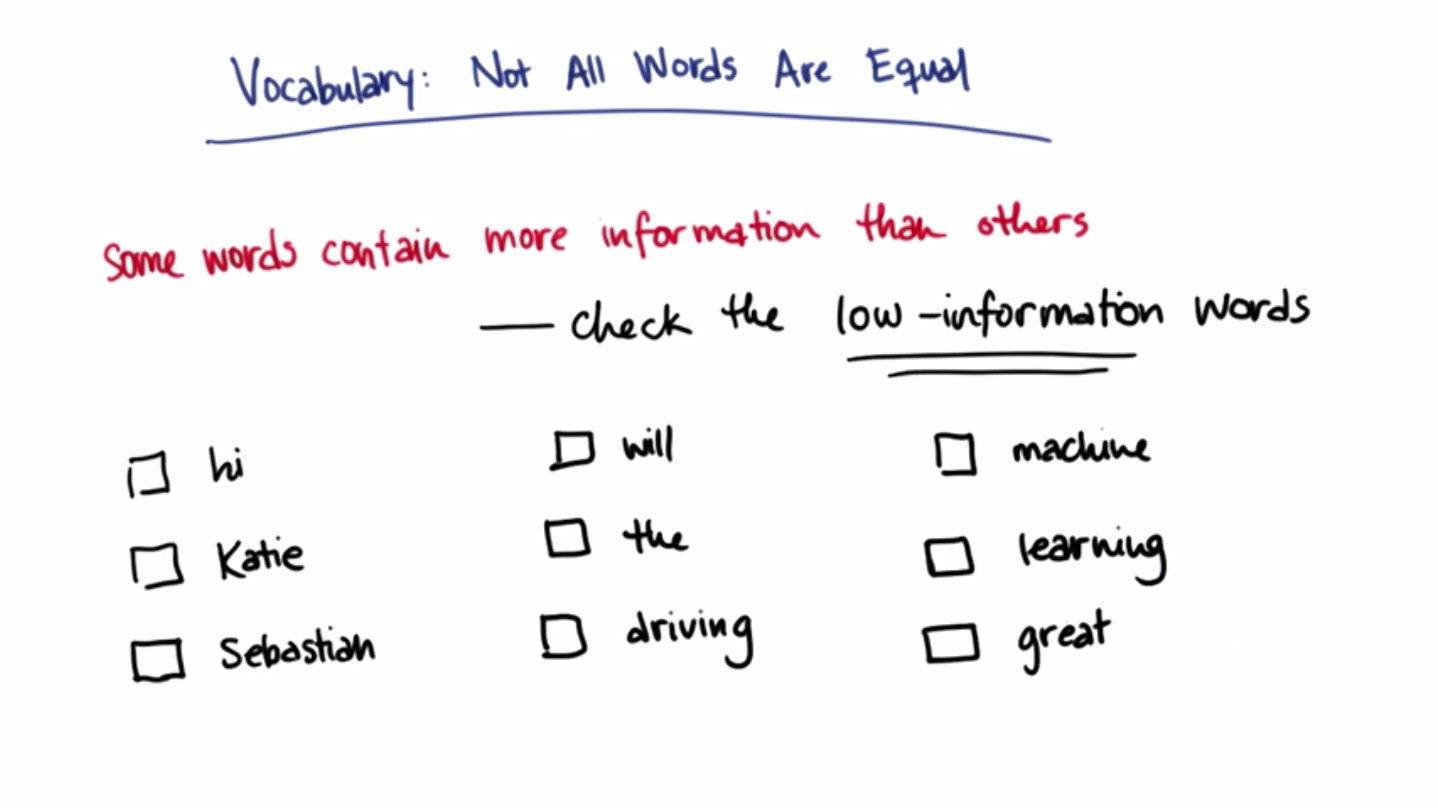 Vocabulary: Not All Words Are Equal
Some words contain more information than others
— check the low-information words
hi
Katie
Sebastian
will
the
driving
machine
learning
great